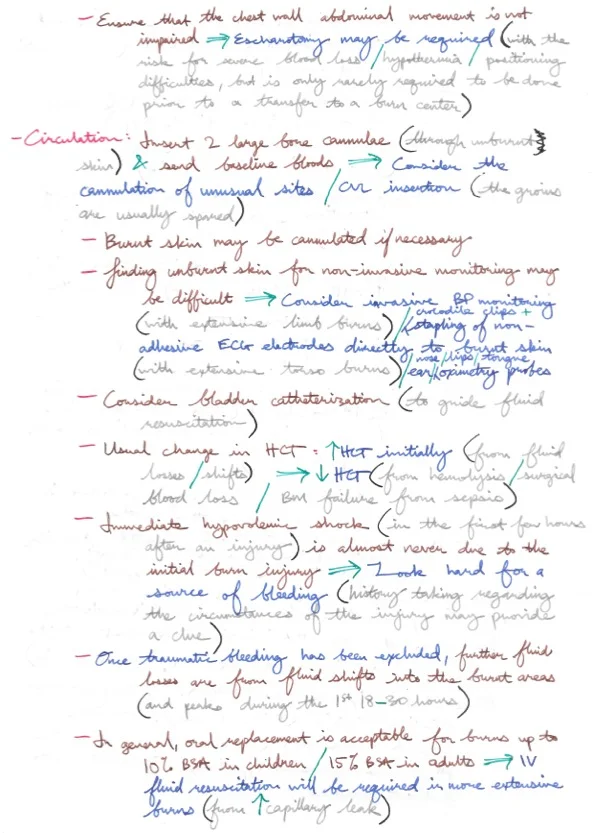 - Ensure that the chest wall abdominal movement is not
impaired ⇒ Escharotomy may be required (with the
risk for severe blood loss / hypothermia / positioning
difficulties, but is only rarely required to be done
prior to a transfer to a burn center)
- Circulation: Insert 2 large bore cannulae (through unburnt
skin) & send baseline bloods → Consider the
cannulation of unusual sites / CVL insertion (the groins
are usually spared)
- Burnt skin may be cannulated if necessary
- Finding unburnt skin for non-invasive monitoring may
be difficult ⇒ Consider invasive BP monitoring
(with extensive limb burns) / crocodile clips +
stapling of non-
adhesive ECG electrodes directly to burnt skin
(with extensive torso burns) / nose / lips / tongue
/ ear / oximetry probes
- Consider bladder catheterization (to guide fluid
resuscitation)
- Usual change in HCT: ↑HCT initially (from fluid
losses / shifts) → ↓ HCT (from hemolysis / surgical
blood loss / BM failure from sepsis)
- Immediate hypovolemic shock (in the first few hours
after an injury) is almost never due to the
initial burn injury ⇒ Look hard for a
source of bleeding (history taking regarding
the circumstances of the injury may provide
a clue)
- Once traumatic bleeding has been excluded, further fluid
losses are from fluid shifts into the burnt areas
(and peaks during the 1st 18-30 hours)
- In general, oral replacement is acceptable for burns up to
10% BSA in children / 15% BSA in adults ⇒ IV
fluid resuscitation will be required in more extensive
burns (from ↑ capillary leak)